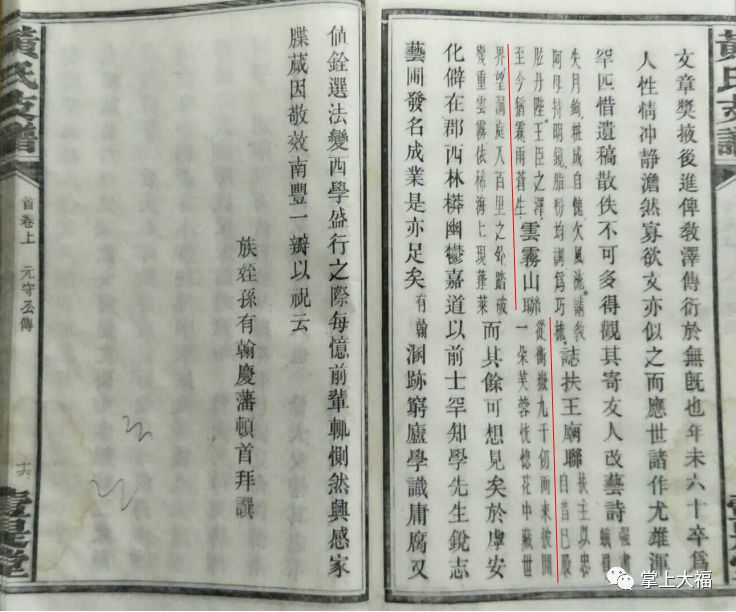 黃氏支譜
文章獎掖後進俾教澤傳衍於無旣也年未六十卒爲
人性情冲静澹然寡欲文亦似之而應世諸作尤雄渾
罕匹惜遺稿散佚不可多得觀其寄友人改藝詩
失月鉤粧成自愧欠風流請教
阿母持明鏡脂粉均調爲巧梳誌扶王廟聯扶主以忠
自昔已股
肱丹陛王臣之澤
至今猶霖雨蒼生雲霧山聯從衡嶽九千仞而來披開
一朵芙蓉恍惚花中藏世
界望洞庭八百里之外踏破
幾重雲霧依稀海上現蓬萊而其餘可想見矣於虖安
化僻在郡西林莽幽鬱嘉道以前士罕知學先生銳志
藝圃發名成業是亦足矣有翰溷跡窮廬學識庸腐又
値銓選法變西學盛行之際每憶前輩輒惻然興感家
牒蕆因敬效南豐一瓣以祝云
族姪孫有翰慶藩頓首拜譔
黃氏支譜
首卷上 元守丞傳
十六
掌上大福